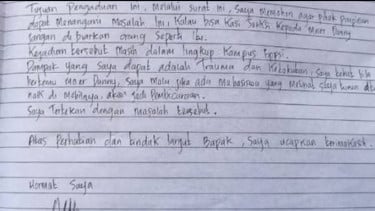 Tujuan Pengaduan Ini, Melalui Surat Ini, Saya Memohon agar pihak Pimpinan
dapat Menangani Masalah Ini. Kalau bisa Kasi Sanksi Kepada Mener Danny
Jangan di Biarkan orang Seperti itu.
Kejadian tersebut Masih dalam lingkup Kampus
Dampak yang Saya dapat adalah Trauma dan Ketakutan, Saya takut bila
bertemu Mener Danny, Saya Malu jika ada Mahasiswa yang Melihat Saya turun atau
naik di Mobilnya, akan Jadi Pembicaraan.
Saya Tertekan dengan masalah tersebut.
Atas Perhatian dan tindak lanjut Bapak, Saya ucapkan terimakasih.
Hormat Saya